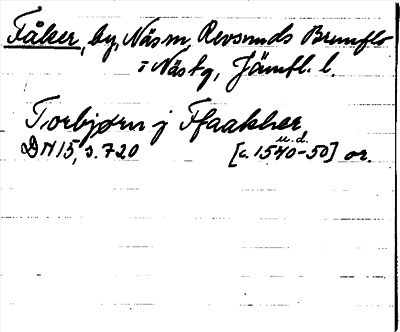 Fåker, by, Näs sn, Revsunds Brunflo
i Näs tg, Jämtl. l.
Torbjørn j Ffaakher
u.d.
DN 15, s. 720 [c. 1540-50] or.